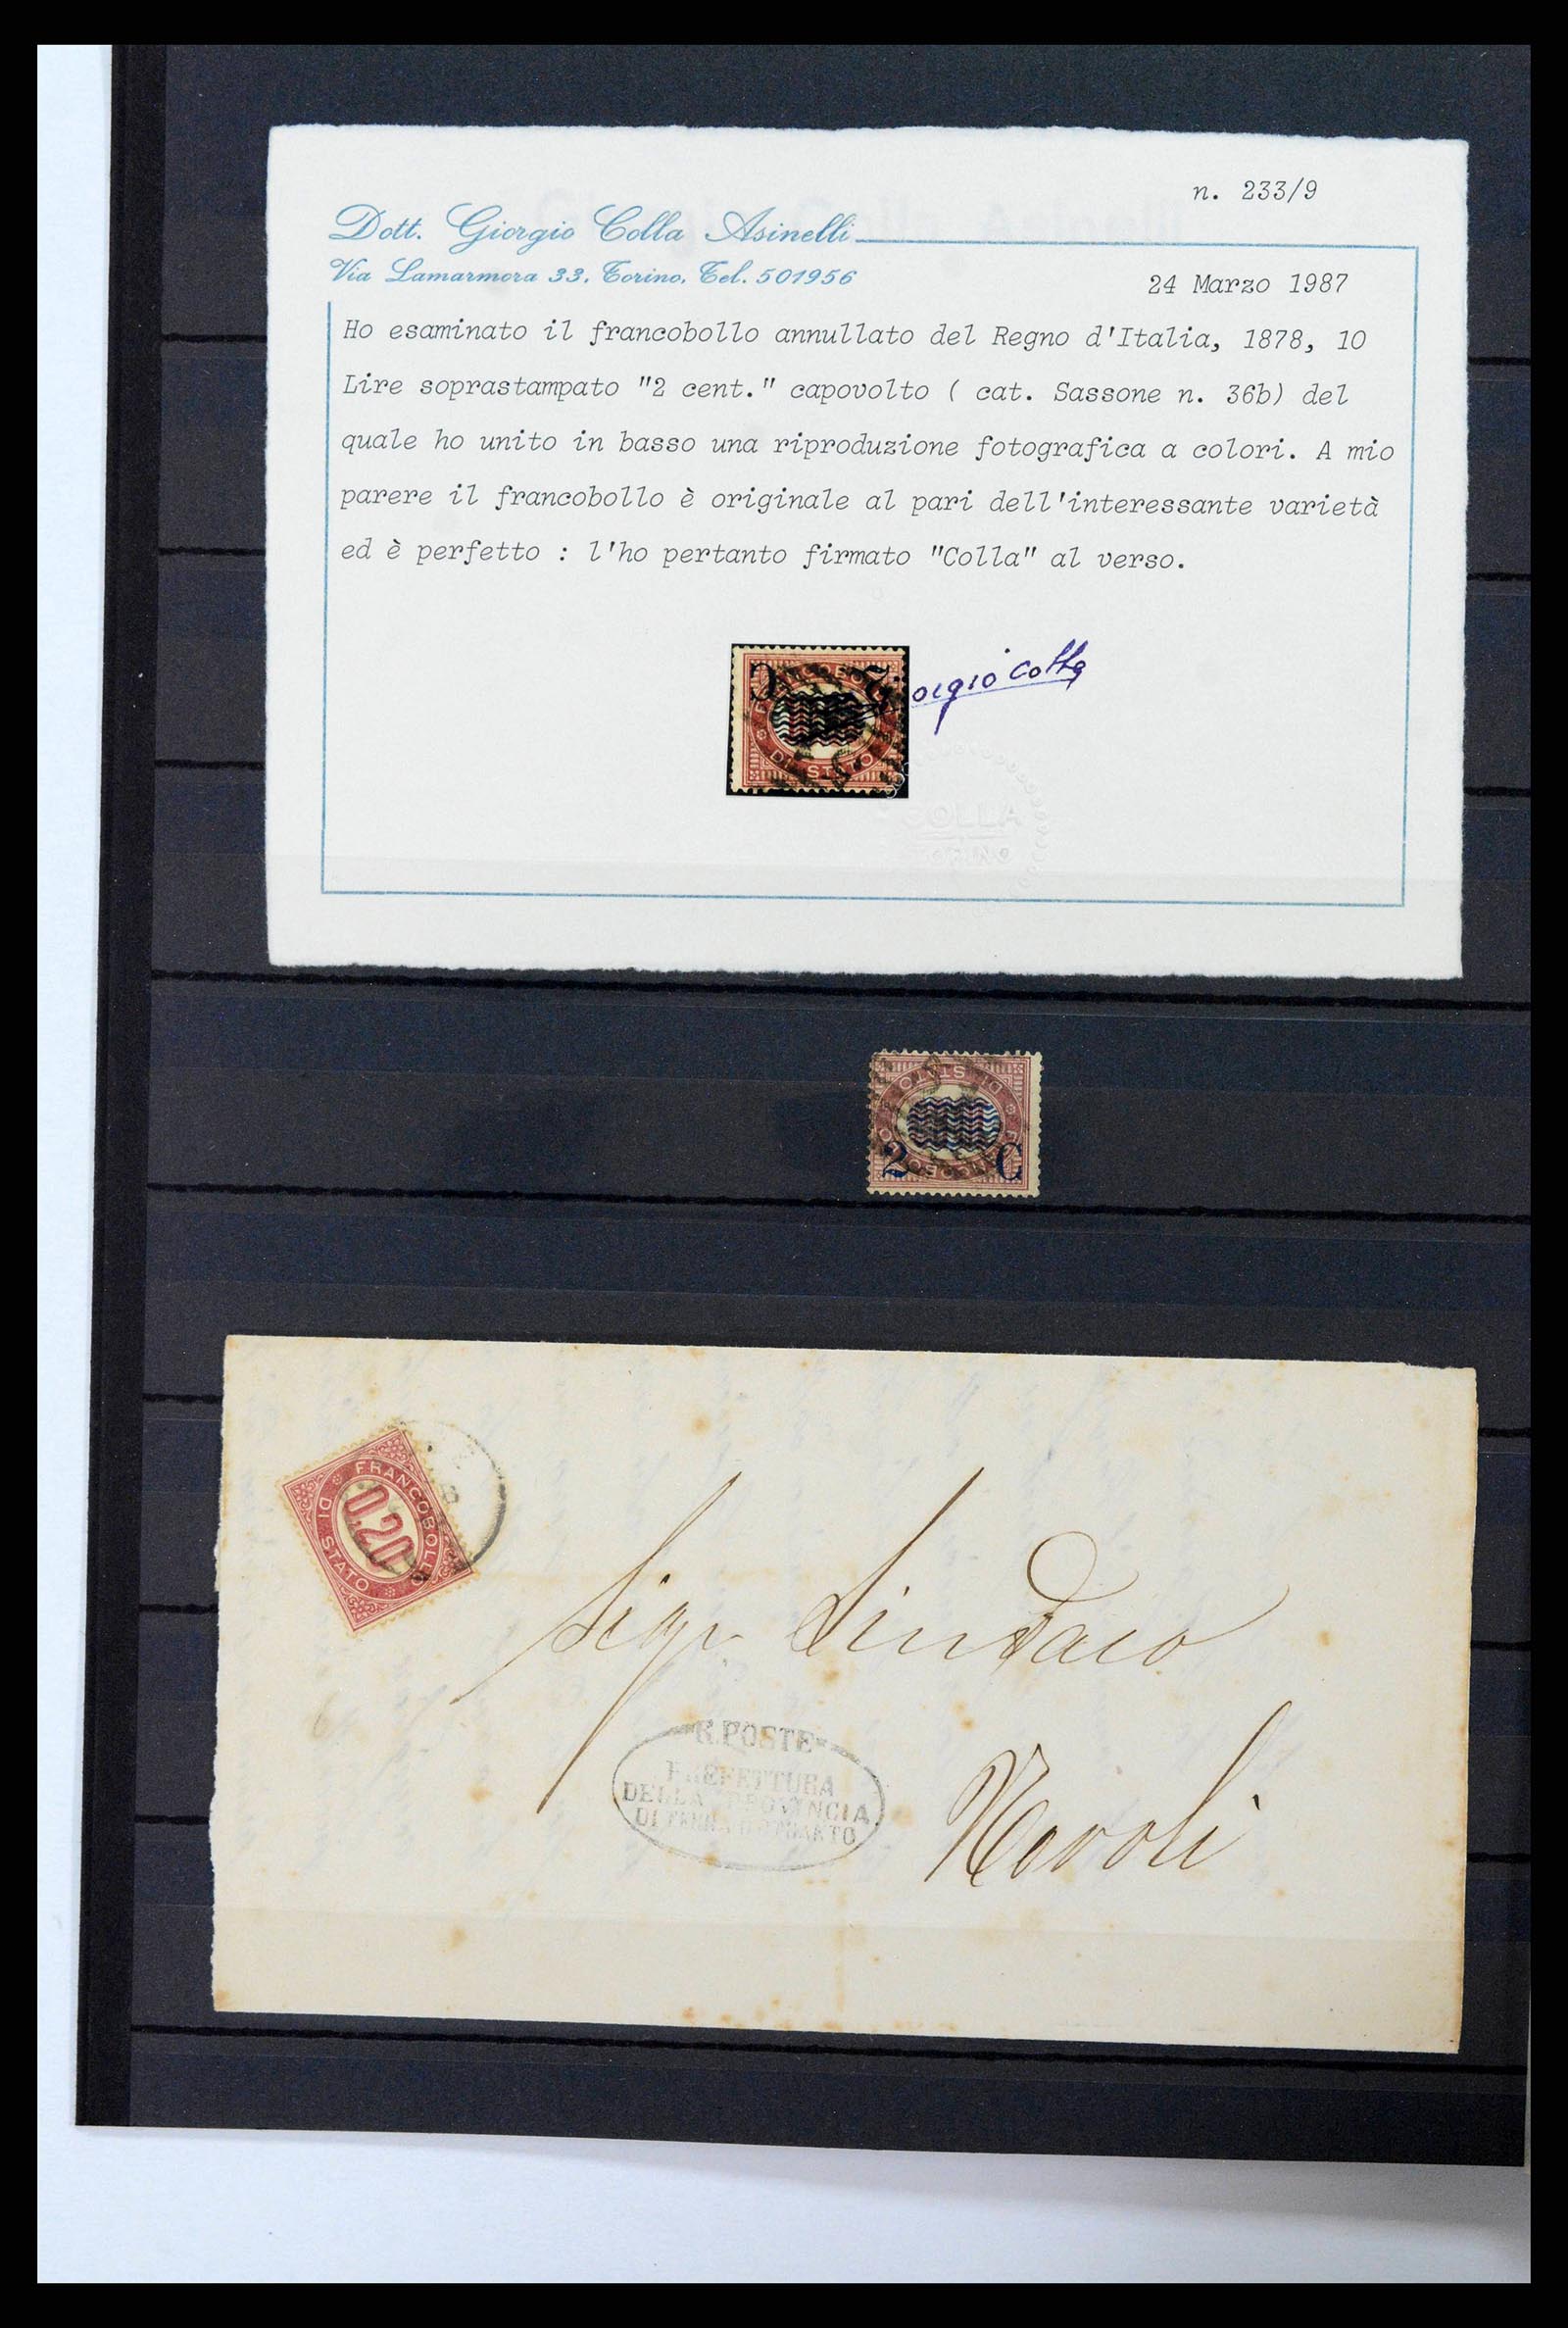 n. 233/9
Dott. Giorgio Colla Asinelli
Via Lamarmora 33. Torino. Tel. 501956
24 Marzo 1987
Ho esaminato il francobollo annullato del Regno d'Italia, 1878, 10
Lire soprastampato "2 cent." capovolto ( cat. Sassone n. 36b) del
quale ho unito in basso una riproduzione fotografica a colori. A mio
parere il francobollo è originale al pari dell'interessante varietà
ed è perfetto : l'ho pertanto firmato "Colla" al verso.
2 C
DI STATO
orgio Colla
COLLA
TORINO
DI STATO
2 C
FRANCOBOLLO
0,20
DI STATO
Sigr Sindaco
R. POSTE
PREFETTURA
DELLA PROVINCIA
DI TERRA D'OTRANTO
Novoli